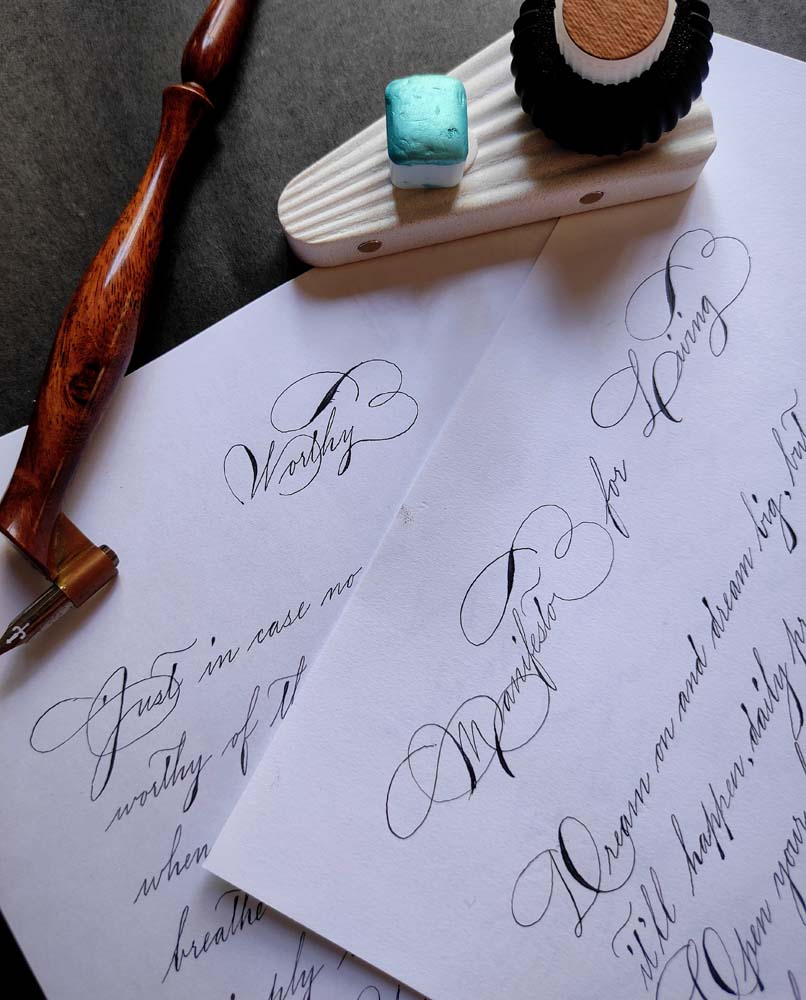 Worthy
Just in case no
worthy of
when
breathe
Manifesto for Living
Dream on and dream big, but
it'll happen, daily
Open your